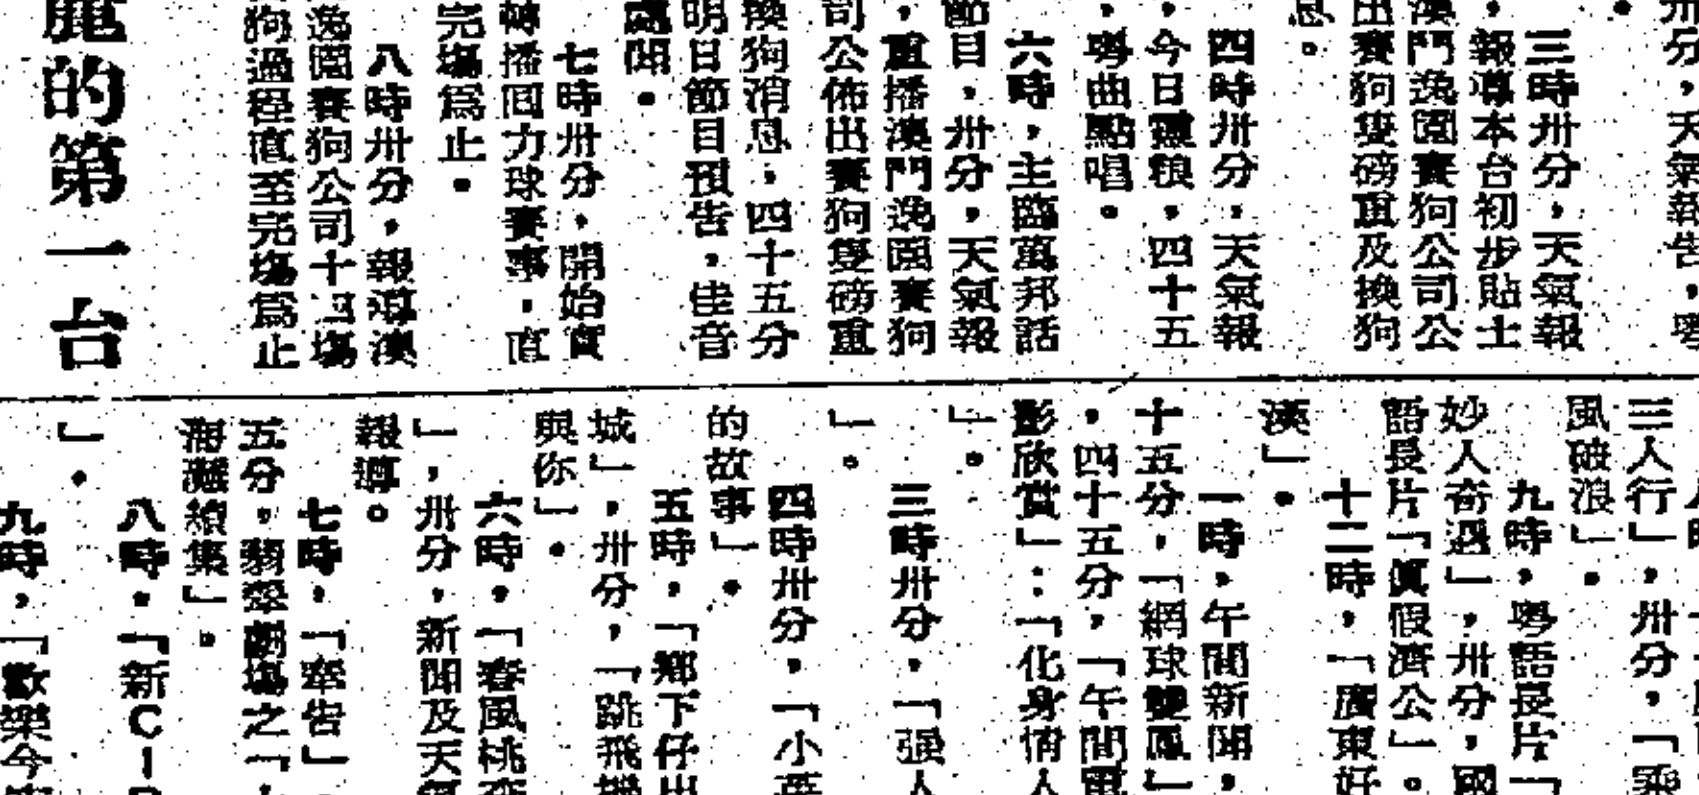 卅分，天氣報告，粵
。
三時卅分，天氣報
，報導本台初步貼士
澳門逸園賽狗公司公
出賽狗隻磅重及換狗
息。
四時卅分，天氣報
，今日靈粮，四十五
，粵曲點唱。
六時，主臨萬邦話
節目，卅分，天氣報
，重播澳門逸園賽狗
司公佈出賽狗隻磅重
換狗消息，四十五分
明日節目預告，佳音
處聞。
七時卅分，開始實
轉播回力球賽事，直
完塲爲止。
八時卅分，報導澳
逸園賽狗公司十四塲
狗過程直至完塲爲止
麗的第一台
三人行」，卅分，「乘
風破浪」。
九時，粵語長片「
妙人奇遇」，卅分，國
語長片「眞假濟公」。
十二時，「廣東好
漢」。
一時，午間新聞，
十五分，「網球雙鳳」
，四十五分，「午間電
影欣賞」：「化身情人
」。
三時卅分，「强人
」。
四時卅分，「小英
的故事」。
五時，「鄉下仔出
城」，卅分，「跳飛機
與你」。
六時，「春風桃李
」，卅分，新聞及天氣
報導。
七時，「奉告」，
五分，翡翠劇塲之「
海灘續集」。
八時，「新CID
」。
九時，「歡樂今宵